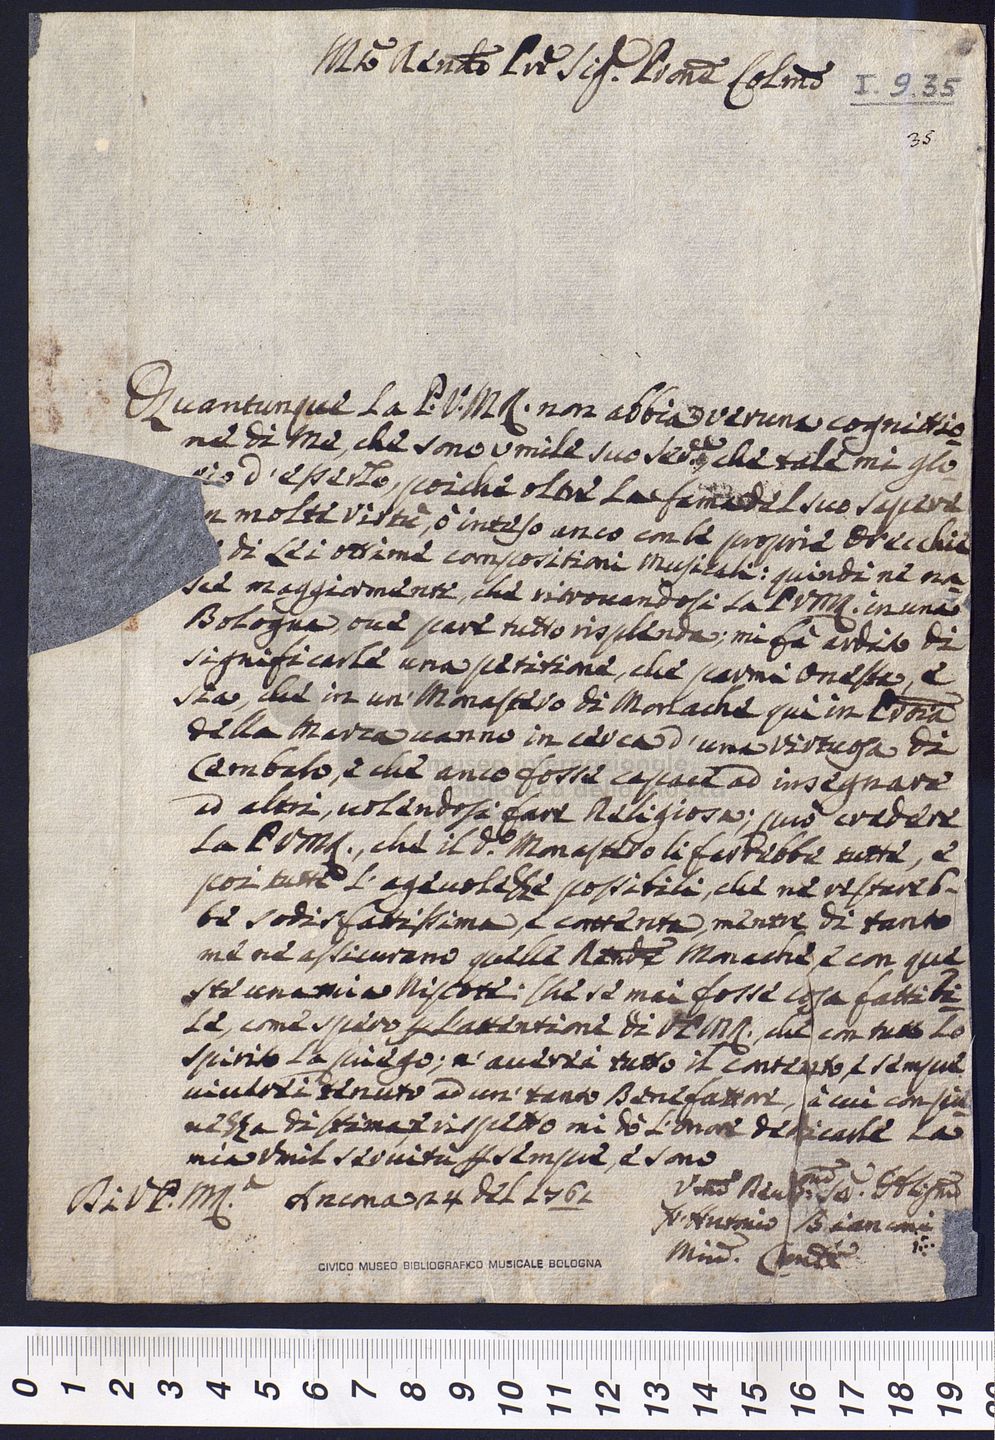 Mto Rendo Pre Sigr. Prone Colmo
I. 9.35
35
Quantunque La P. V. MR. non abbia veruna cognittio-
ne di Me, che sono umile suo Serre, che tale mi glo-
rio d'esserlo, poiche oltre La fama del suo sapere
in molte virtù, ò inteso anco con le proprie Orecchie
di Lei ottime compositioni Musicali: quindi ne na
sce maggiormente, che ritrovandosi La PVMR. in una
Bologna, ove pare tutto risplenda; mi fà ardito di
significarle una petitione, che parmi Onesta, e
sia, che in un' Monastero di Monache quì in Provia
della Marca vanno in cerca d'una virtuosa di
Cembalo, e che anco fosse capace ad insegnare
ad altri, volendosi fare Religiosa; può credere
La PVMR., che il d.o Monastero li farrebbe tutte, e
poi tutte L'agevolezze possibili, che ne restareb-
be sodisfattissima, e contenta, mentre di tanto
me ne assicurano quelle Rende Monache, e con que
ste una mia Nipote: Che se mai fosse cosa fattibi
le, come spero p L'attentione di V. P. MR., che con tutto Lo
spirito La priego; n' averei tutto il contento, e sempre
viverei tenuto ad un' tanto Benefattore, à cui con pie
nezza di stima, e rispetto mi dò L'onore dedicarle La
mia Umil servitù p sempre, e sono
Di V P. MR.a Ancona 24 del 1761
Vmo Devmo Se. Obligmo
Fr Antonio Bianconi
Min. Conle
museo internazionale
e biblioteca della musica
CIVICO MUSEO BIBLIOGRAFICO MUSICALE BOLOGNA
0 1 2 3 4 5 6 7 8 9 10 11 12 13 14 15 16 17 18 19 20